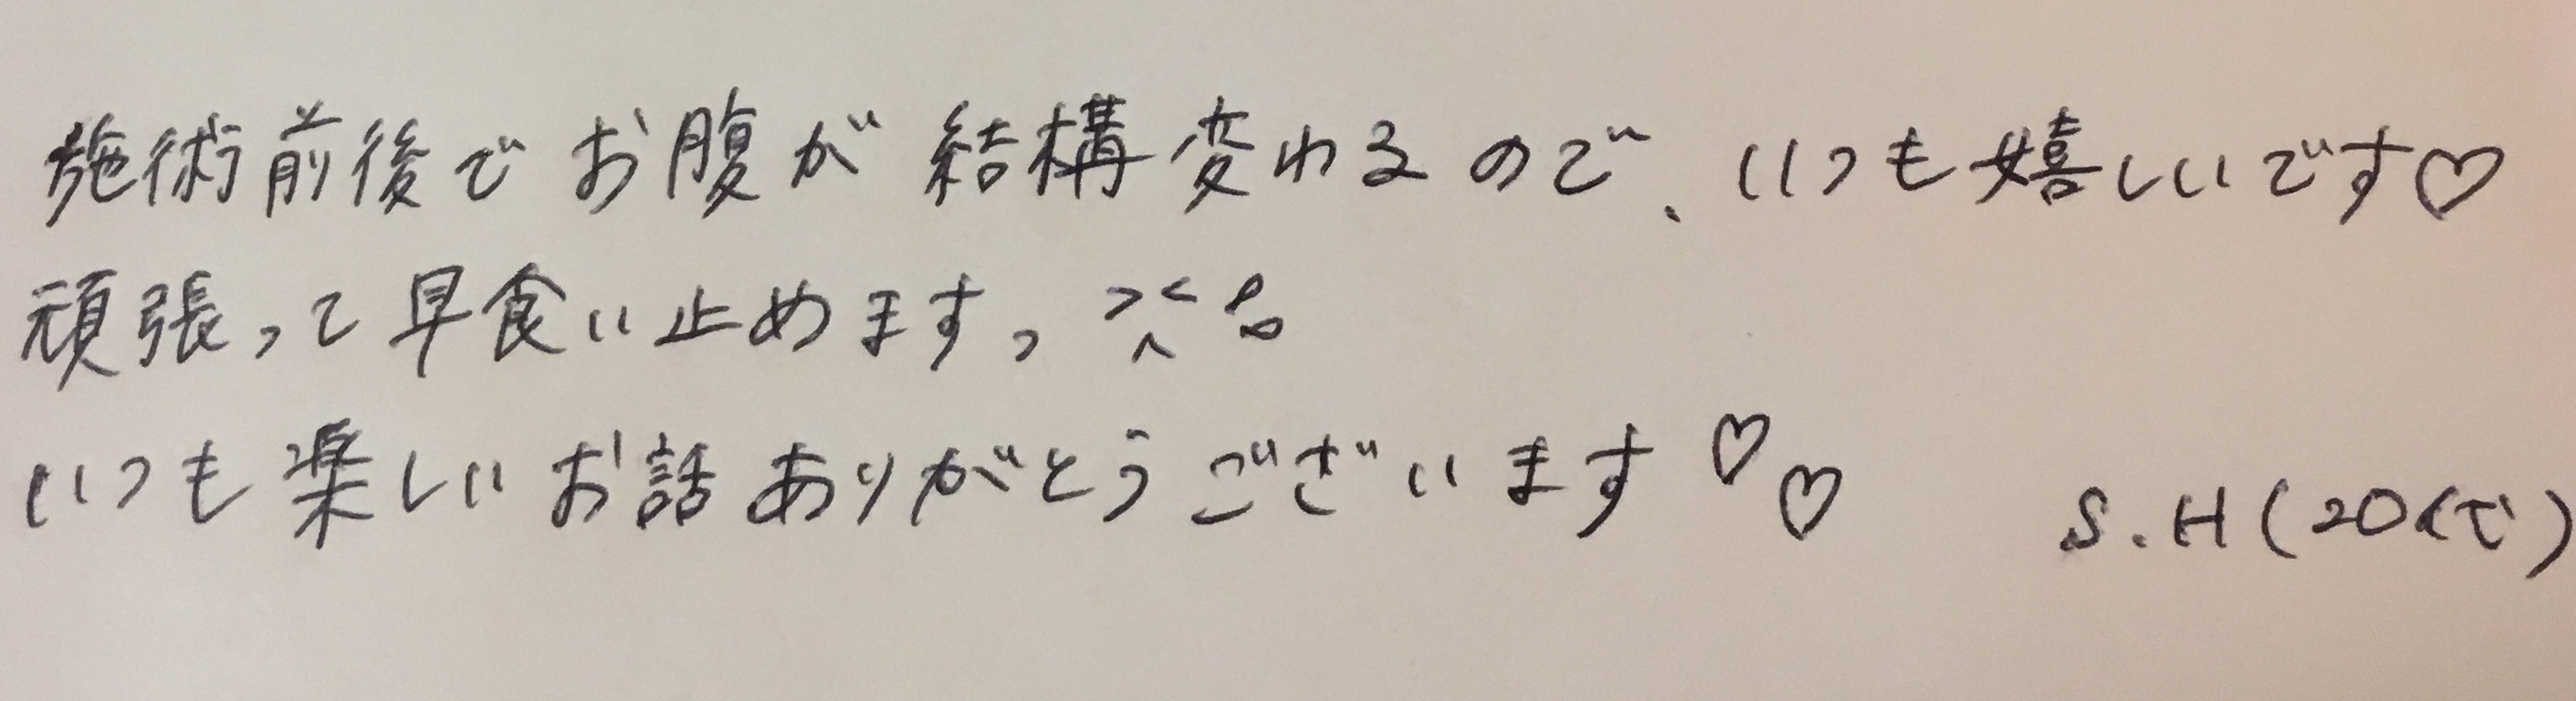 施術前後でお腹が結構変わるので、いつも嬉しいです♡
頑張って早食い止めますっ
いつも楽しいお話ありがとうございます♡♡
S.H(20代)